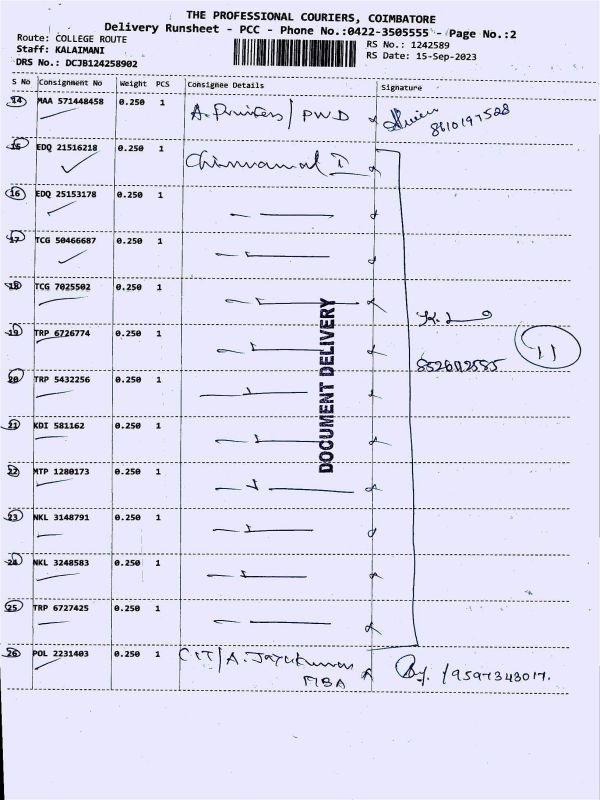 THE PROFESSIONAL COURIERS, COIMBATORE
Delivery Runsheet - PCC - Phone No.:0422-3505555 - Page No.:2
Route: COLLEGE ROUTE
RS No.: 1242589
Staff: KALAIMANI
RS Date: 15-Sep-2023
DRS No.: DCJB124258902
S No Consignment No Weight PCS Consignee Details Signature
14 MAA 571448458 0.250 1 A. Printers / PWD 8610197528
15 EDQ 21516218 0.250 1
16 EDQ 25153178 0.250 1
17 TCG 50466687 0.250 1
18 TCG 7025502 0.250 1
19 TRP 6726774 0.250 1
11
20 TRP 5432256 0.250 1
21 KDI 581162 0.250 1
22 MTP 1280173 0.250 1
23 NKL 3148791 0.250 1
24 NKL 3248583 0.250 1
25 TRP 6727425 0.250 1
26 POL 2231403 0.250 1 CIT/A. Jayakumar / 9597343017.
MBA
DOCUMENT DELIVERY